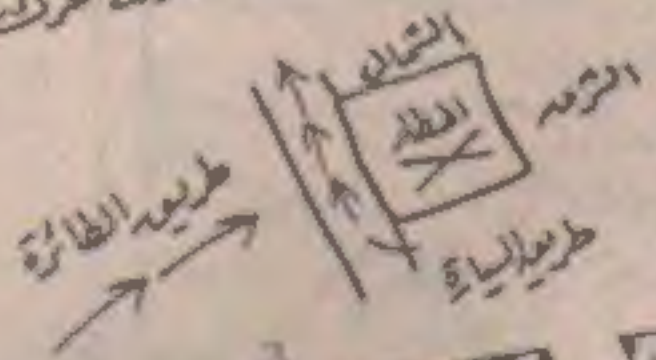 الشمال
المطار
الشرق
طريق الطائرة
طريق السيارة